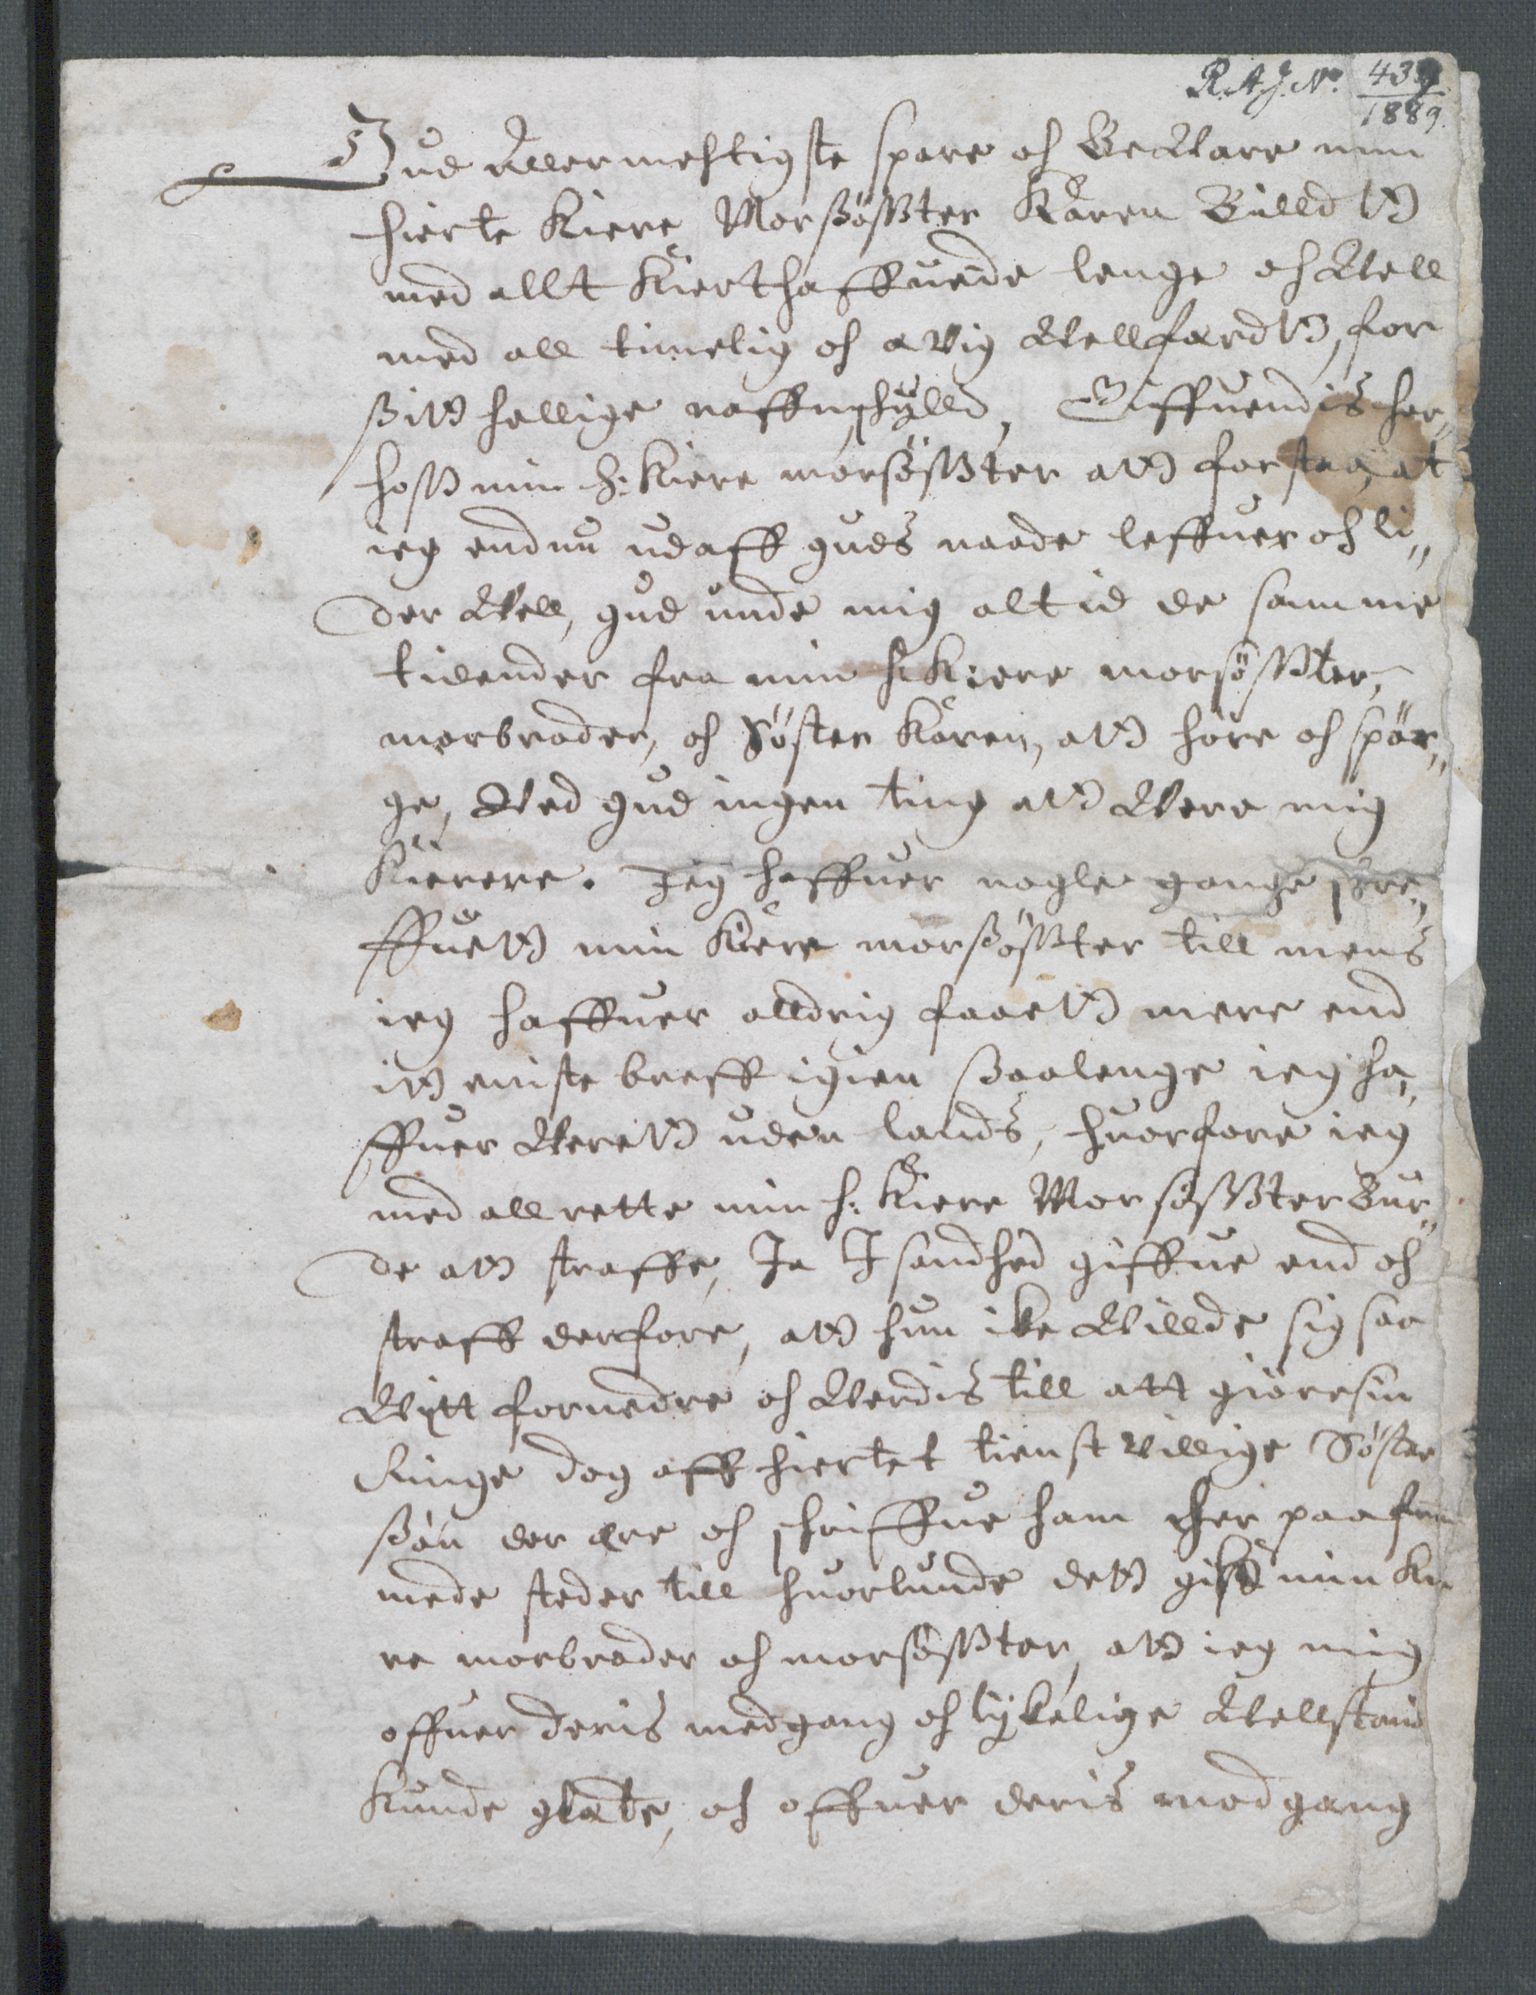 R. A. J. No. 439/1889.
Gud Allermechtigste spare och Beware min
hierte Kiere Morsøsster Karen Billdtt
med allt Kiert haffuede lenge och Well
med all timelig och evig Wellferdtt, for
sitt hellige naffn schylld, Giffuendis her„
hoss min H: Kiere morsøsster att forstaa, at
ieg endnu udaff guds naade leffuer och li„
der Well, gud unde mig altid de samme
tidender fra min H: Kiere morsøsster,
morbroder, och Søster Karen, att høre och spør„
ge, Wed gud ingen ting att Were mig
Kierere. Jeg haffuer nogle gange schre„
ffuett min Kiere morsøsster till mens
ieg haffuer alldrig faaett mere end
itt eniste breff igien saalenge ieg ha„
ffuer Werett uden lands, huorfore ieg
med all rette min H: Kiere Morsøsster Bur„
de att straffe, Ja I sandhed giffue end och
straff derfore, att hun ike Willde sig saa
Witt fornedre och Werdis till att giøre sin
Ringe dog aff hiertet tienst villige Søster
søn der ere och schriffue ham her paa frem
mede steder till huorlunde dett gick min Kie
re morbroder och morsøsster, att ieg mig
offuer deris medgang och lykelige Wellstand
Kunde glede, och offuer deris modgang